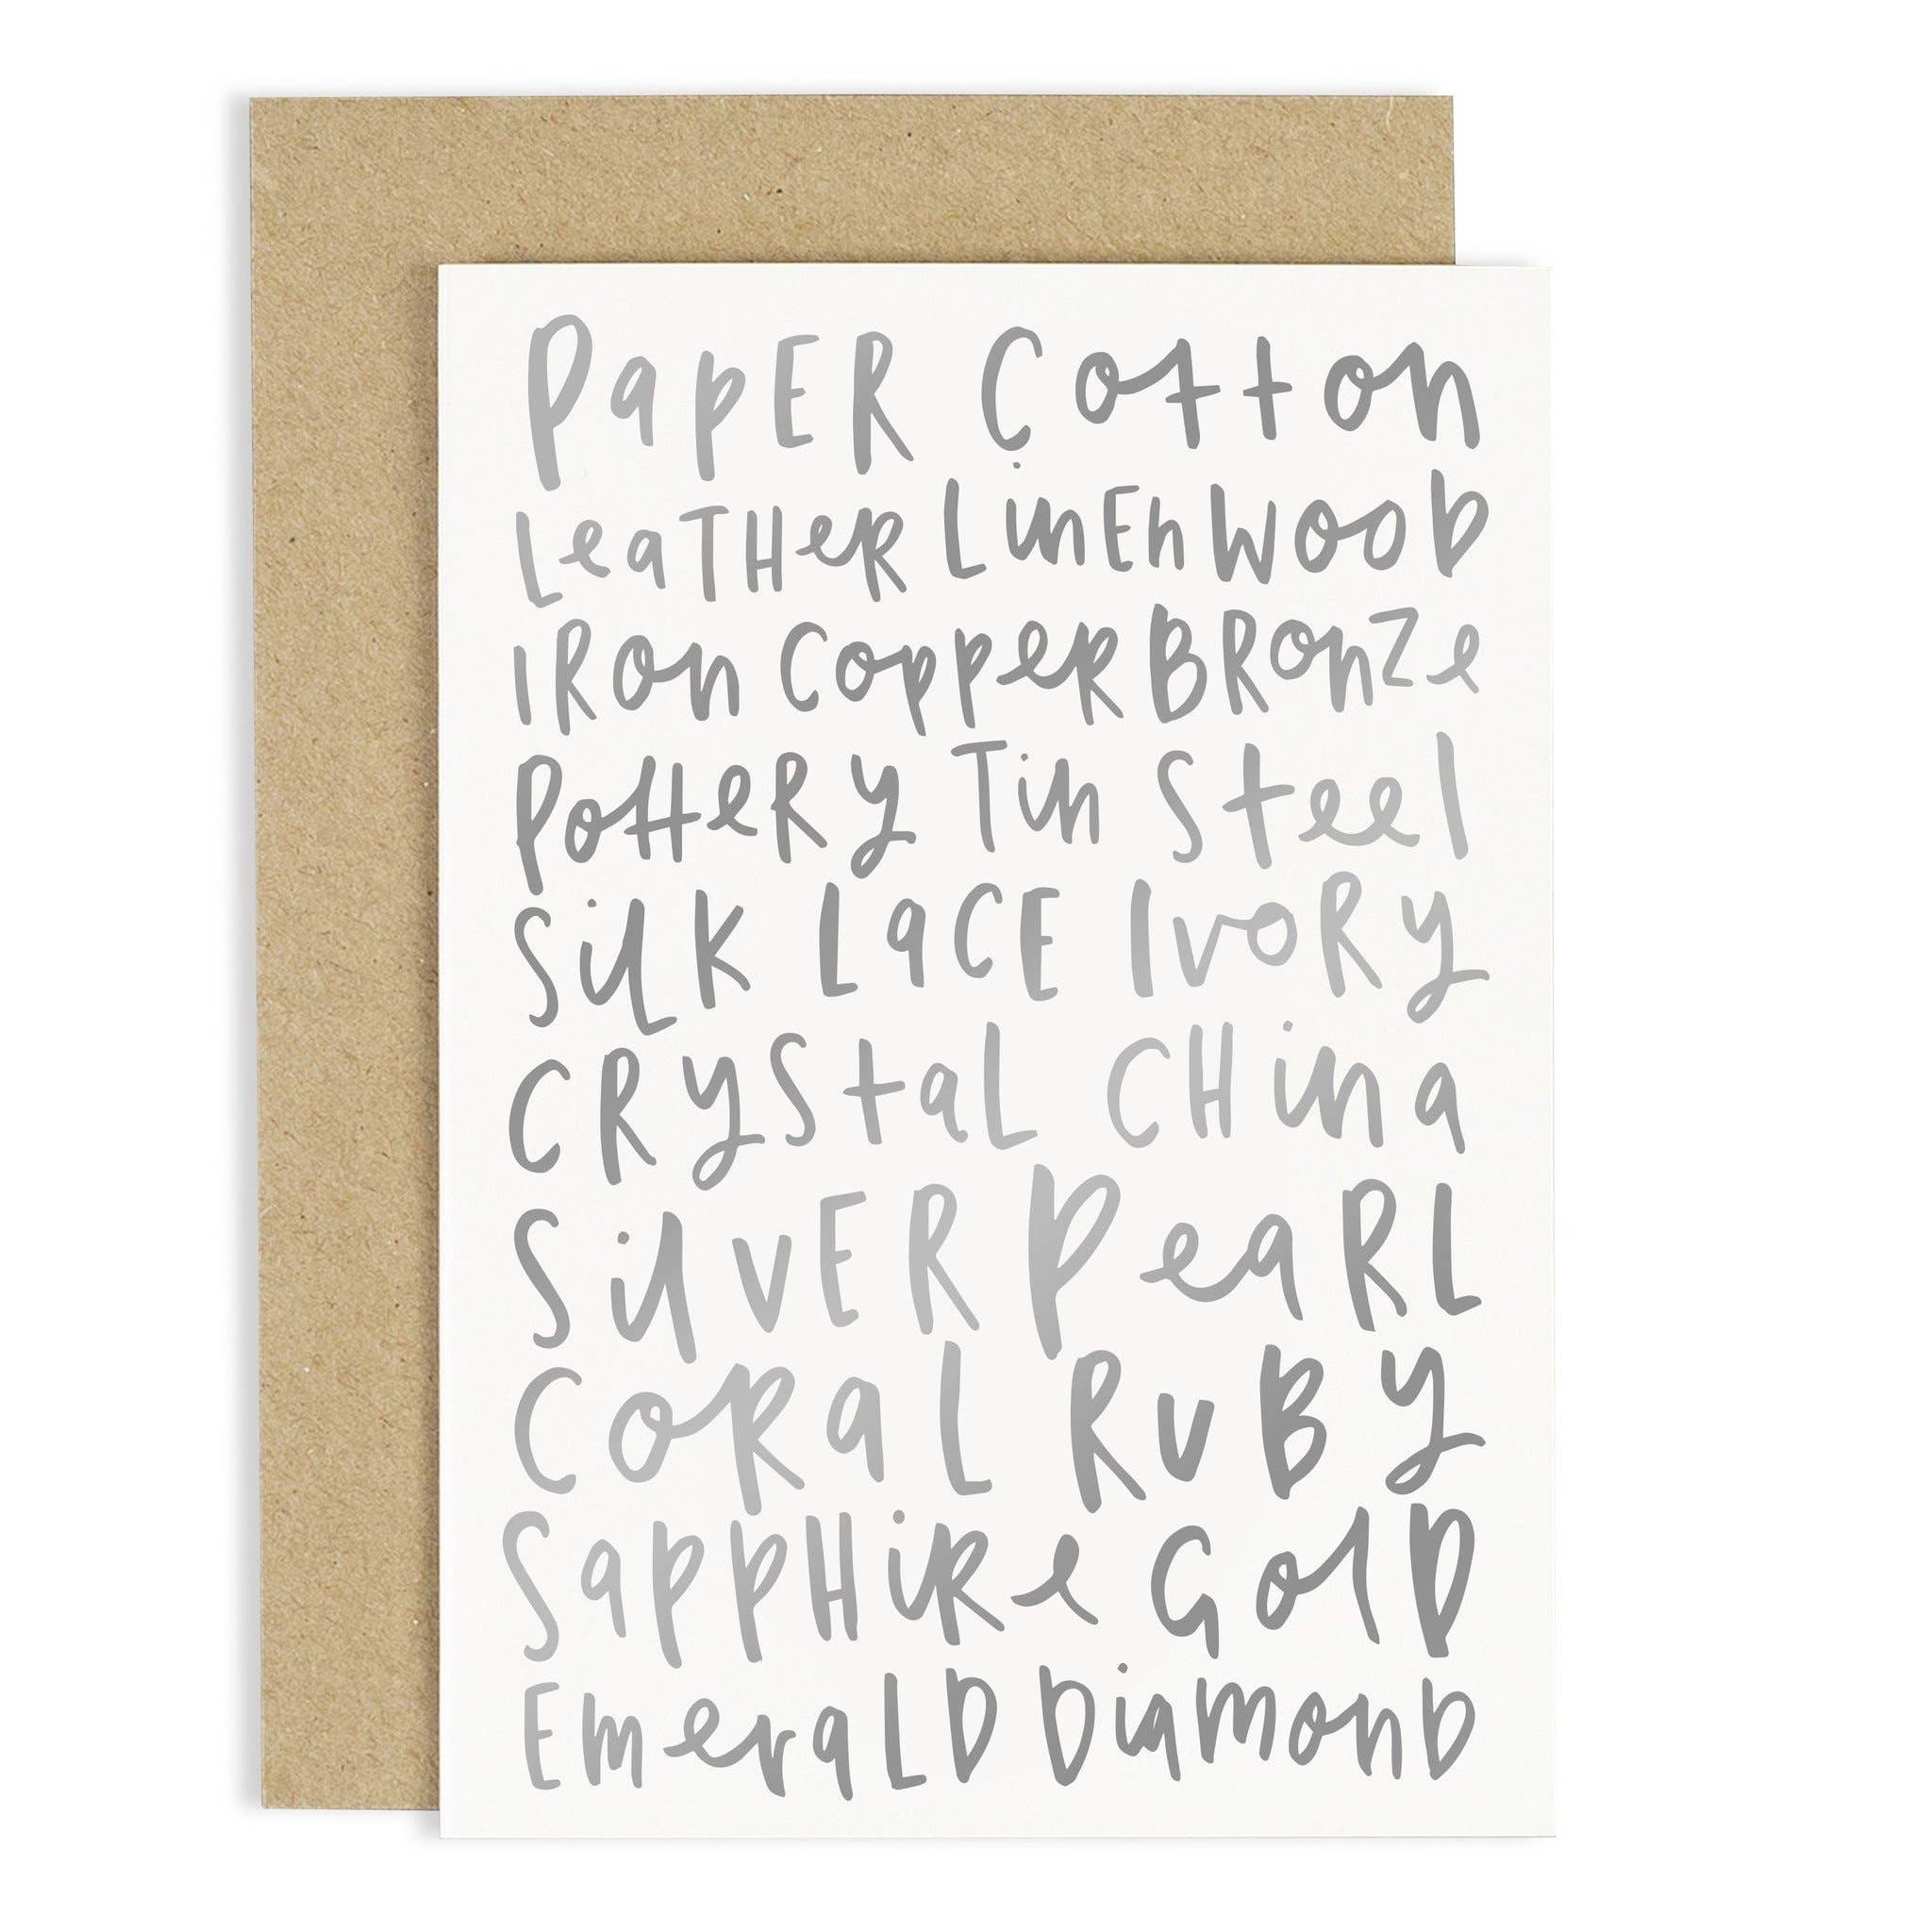 Paper Cotton
Leather Linen Wood
Iron Copper Bronze
Pottery Tin Steel
Silk Lace Ivory
Crystal China
Silver Pearl
Coral Ruby
Sapphire Gold
Emerald Diamond